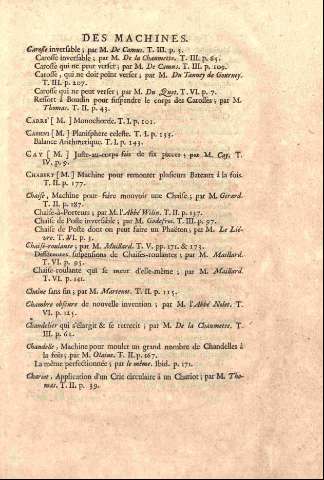 DES MACHINES.
Carosse inversable; par M. De Camus. T. III. p. 3.
Carosse inversable; par M. de la Chaumette. T. III. p. 65.
Carosse qui ne peut verser; par M. De Camus. T. III. p. 109.
Carosse, qui ne doit point verser; par M. Du Tanney de Gourney.
T. III. p. 207.
Carosse qui ne peut verser; par M. Du Quet. T. VI. p. 7.
Ressort à Boudin pour suspendre le corps des Carosses; par M.
Thomas. T. II. p. 43.
CARRE' [ M. ] Monochorde. T. I. p. 101.
CASSINI [ M. ] Planisphere celeste. T. I. p. 133.
Balance Arithmetique. T. I. p. 143.
CAY [ M. ] Juste-au-corps fais de six pieces; par M. Cay. T.
IV. p. 9.
CHABERT [ M. ] Machine pour remonter plusieurs Bateaux à la fois.
T. II. p. 177.
Chaise, Machine pour faire mouvoir une Chaise; par M. Girard.
T. II. p. 187.
Chaise-à-Porteurs; par M. l'Abbé Wilin. T. II. p. 137.
Chaise de Poste inversable; par M. Godefroi. T. III. p. 97.
Chaise de Poste dont on peut faire un Phaëton; par M. Le Lié-
vre. T. VI. p. 5.
Chaise-roulante; par M. Maillard. T. V. pp. 171. & 173.
Differentes suspensions de Chaises-roulantes; par M. Maillard.
T. VI. p. 95.
Chaise-roulante qui se meut d'elle-même; par M. Maillard.
T. VI. p. 141.
Chaîne sans fin; par M. Martenot. T. II. p. 115.
Chambre obscure de nouvelle invention; par M. l'Abbé Nolet. T.
VI. p. 125.
Chandelier qui s'élargit & se retrecit; par M. De la Chaumette. T.
III. p. 61.
Chandelle, Machine pour mouler un grand nombre de Chandelles à
la fois; par M. Olaine. T. II. p. 167.
La même perfectionnée; par le même. Ibid. p. 171.
Chariot, Application d'un Cric circulaire à un Chariot; par M. Tho-
mas. T. II. p. 39.